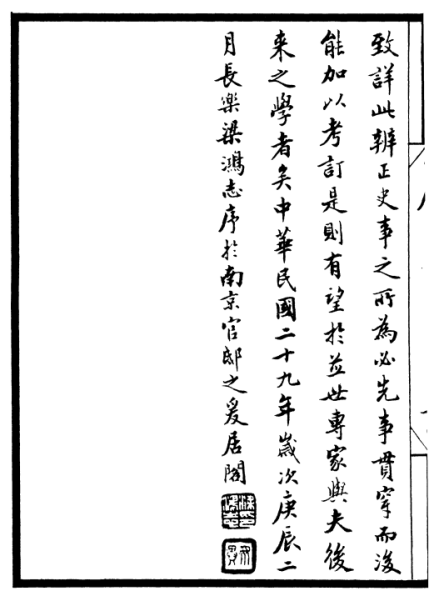 致詳此辨正史事之所為必先事貫穿而後
能加以考訂是則有望於並世專家與夫後
來之學者矣中華民國二十九年歲次庚辰二
月長樂梁鴻志序於南京官邸之爰居閣